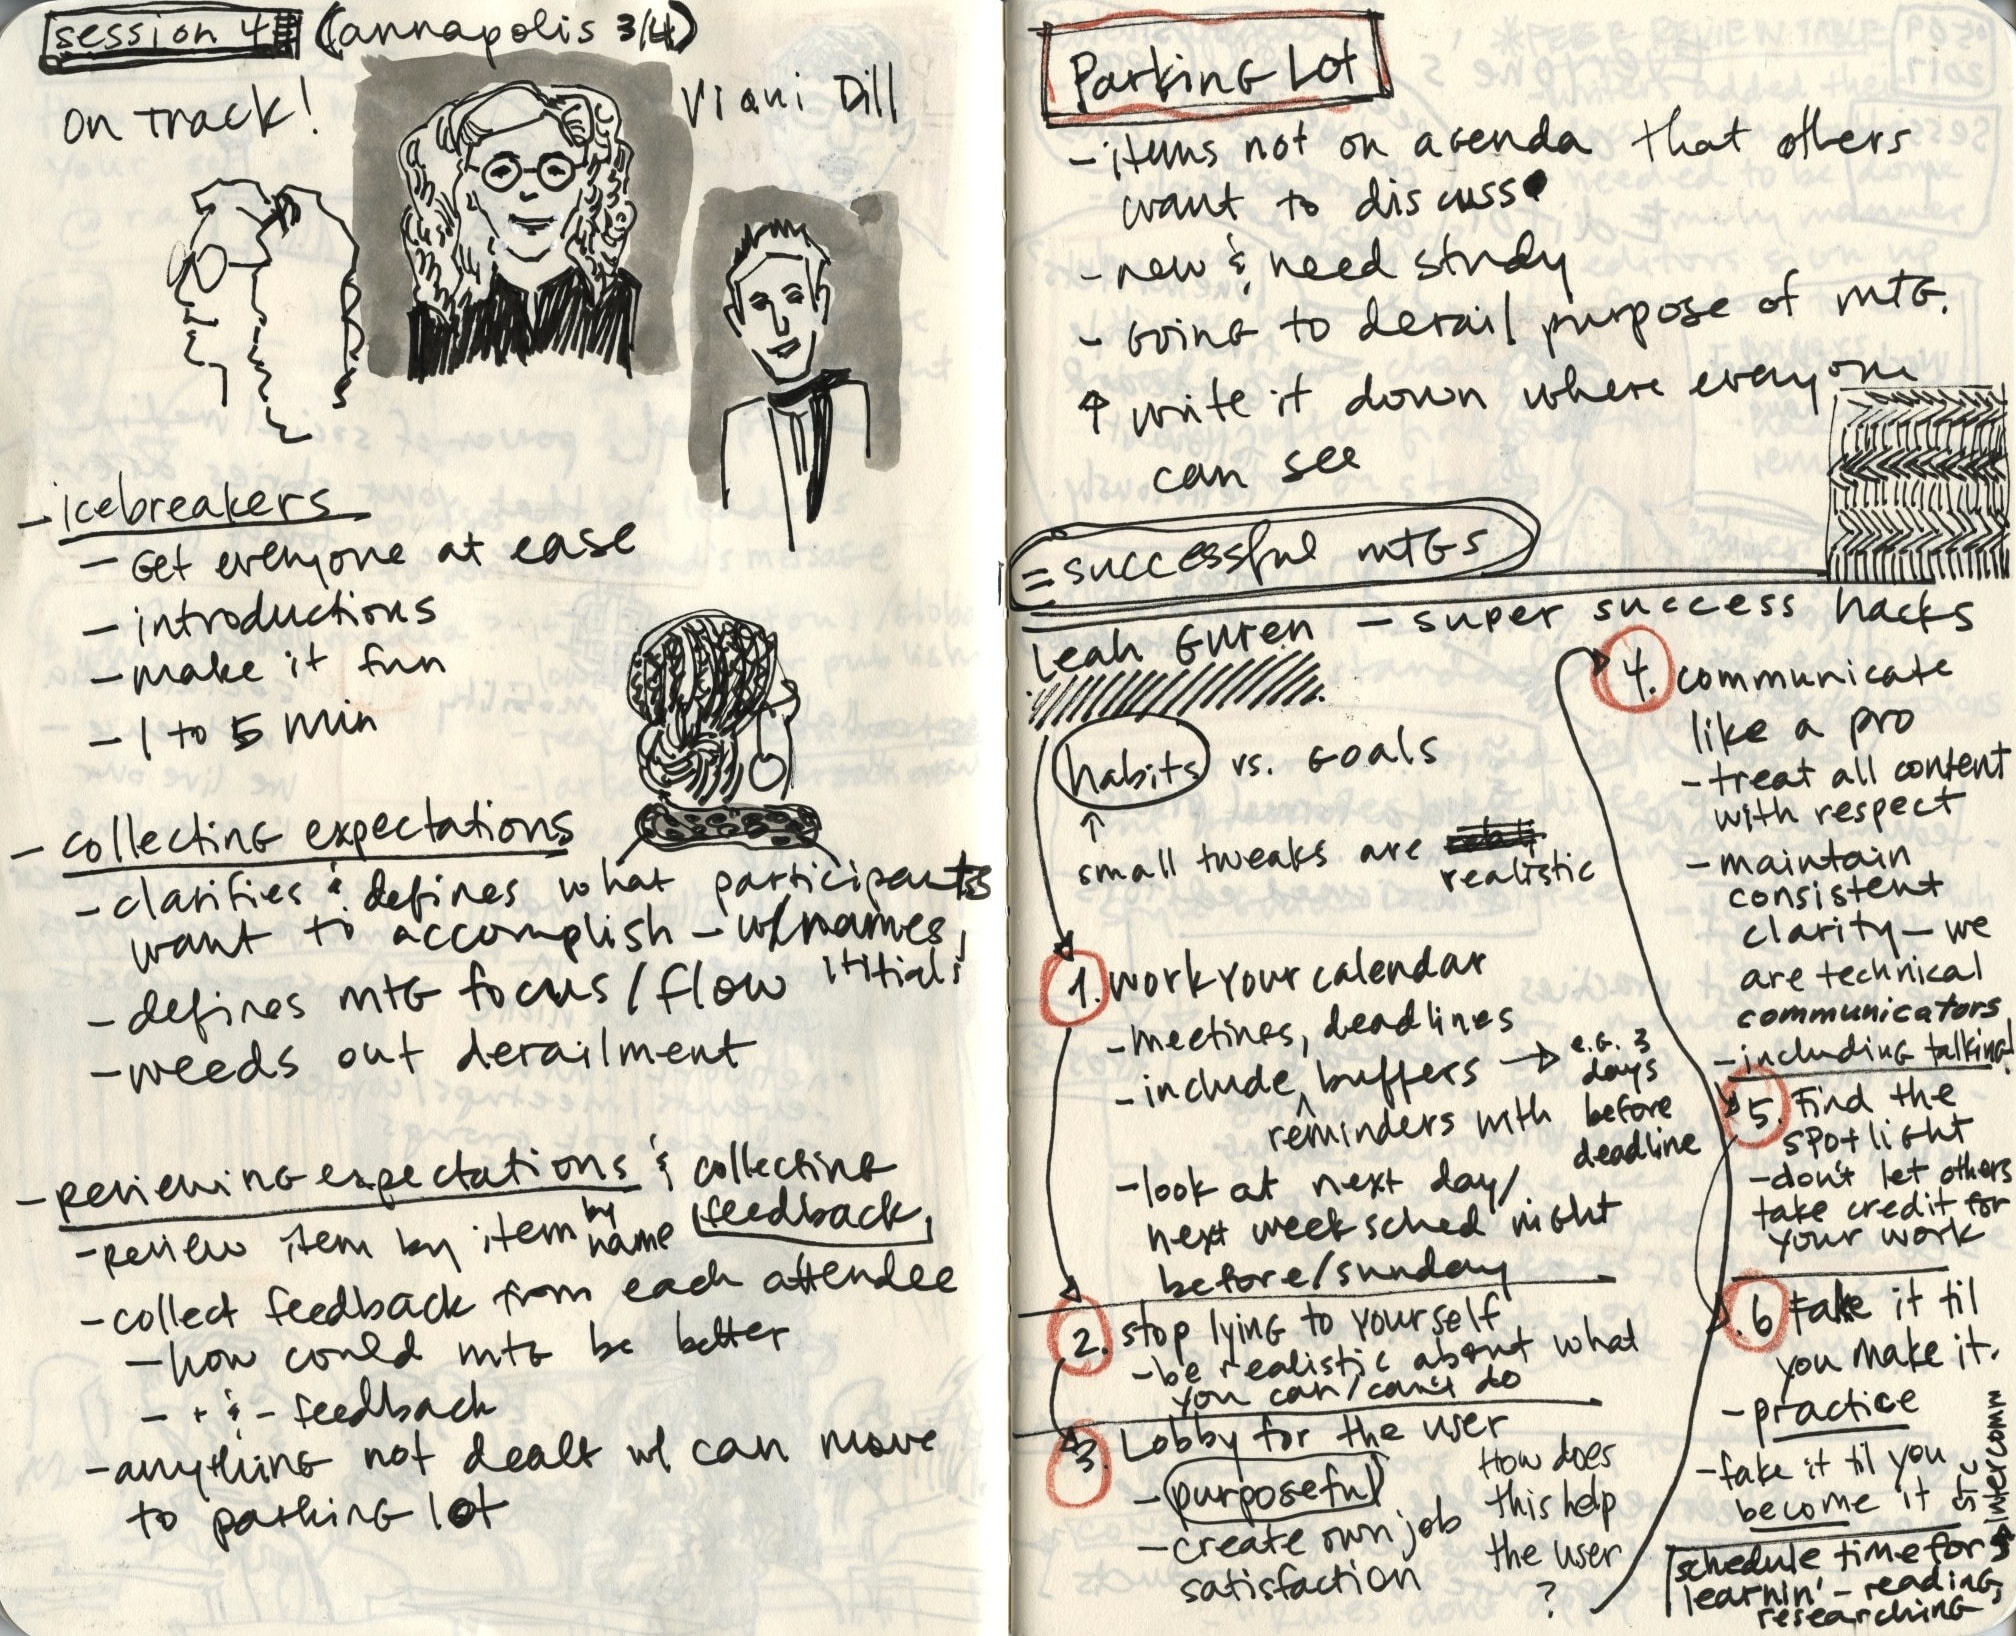 session 4 (annapolis 3/4)
on track!
Viqui Dill
- icebreakers
- Get everyone at ease
- introductions
- make it fun
- 1 to 5 min
- collecting expectations
- clarifies & defines what participants
want to accomplish - w/names,
ititials
- defines mtg focus/flow
- weeds out derailment
- reviewing expectations & collecting
feedback
- review item by item by name
- collect feedback from each attendee
- how could mtg be better
- + & - feedback
- anything not dealt w/ can move
to parking lot
Parking Lot
- items not on agenda that others
want to discuss
- new & need study
- going to derail purpose of mtg.
↑ write it down where everyone
can see
= successful mtgs
Leah Guren - super success hacks
habits vs. goals
↑
small tweaks are realistic
1. work your calendar
- meetings, deadlines
- include buffers → e.g. 3
days
before
deadline
^ reminders with
- look at next day/
next week sched night
before/sunday
2. stop lying to yourself
- be realistic about what
you can/can't do
3. Lobby for the user
- purposeful
- create own job
satisfaction
How does
this help
the user
?
4. communicate
like a pro
- treat all content
with respect
- maintain
consistent
clarity - we
are technical
communicators
- including talking!
5. Find the
spotlight
- don't let others
take credit for
your work
6. Fake it til
you make it.
- practice
- fake it til you
become it
schedule time for
learnin' - reading,
researching
STC
intercomm